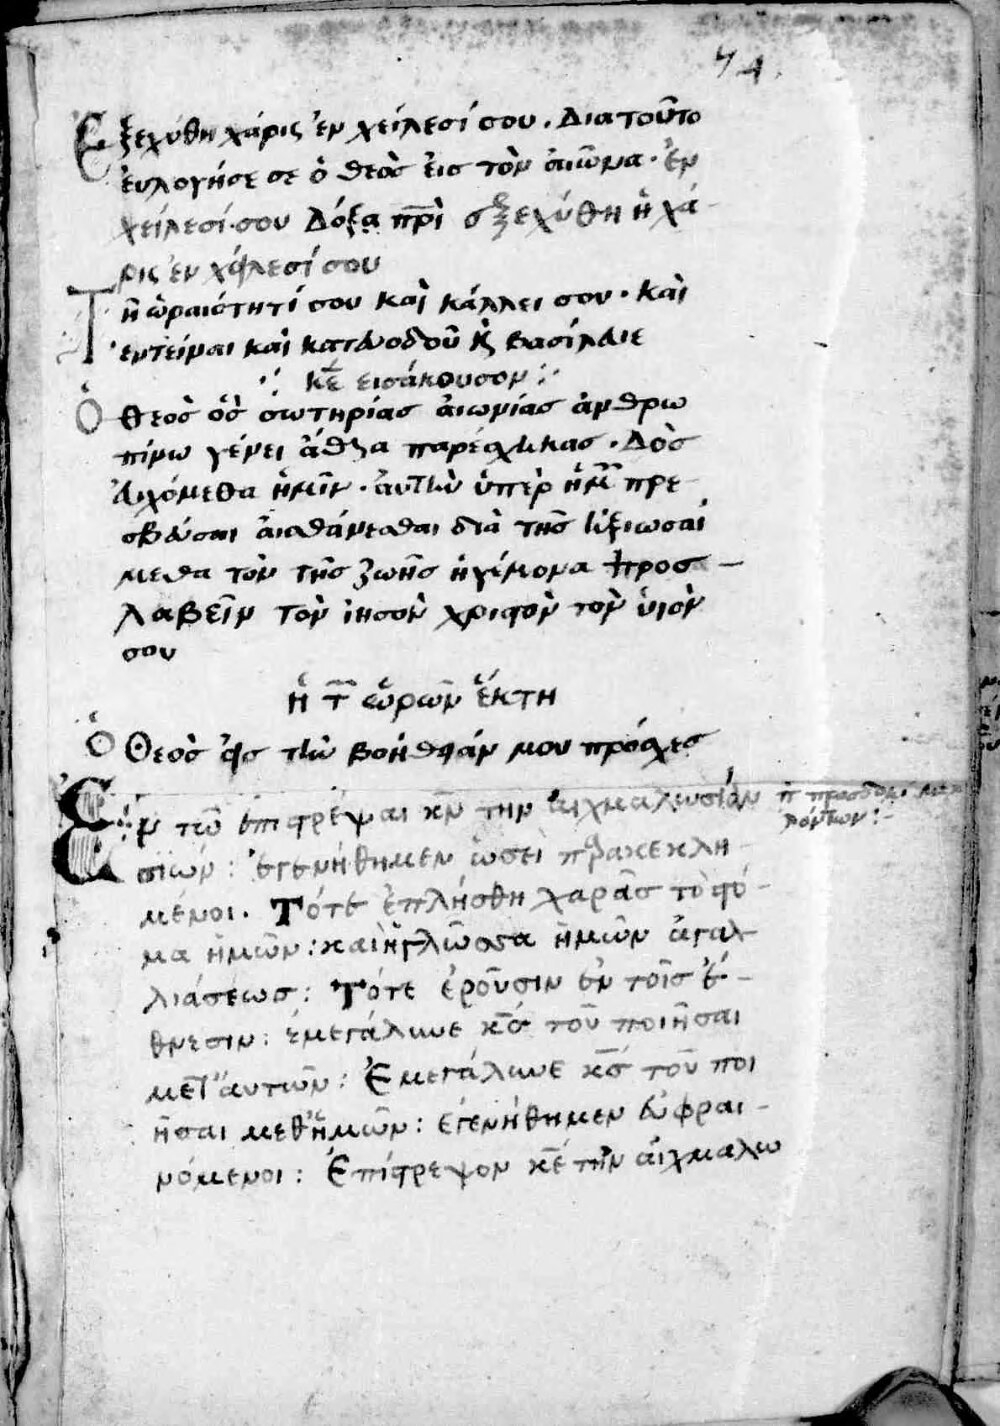 74
Εξεχύθη χάρις ἐν χείλεσί σου. Διατοῦτο
ἐυλογήσε σε ὁ θεὸς ἐις τὸν ἀιῶνα. ἐν
χείλεσί σου Δόξα πρὶ ἐξεχύθη ἡ χά-
ρις ἐν χείλεσί σου
Τῆ ὡραιότητί σου καὶ κάλλει σου. καὶ
ἐντείναι καὶ κατευοδοῦ κὶ βασίλευε
κε εισάκουσον :
Ὁ θεὸς ὃς σωτηρίας ἀιωνίας ἀνθρω
πίνω γένει ἆθλα παρέσχηκας. Δὸς
ἀυχόμεθα ἡμῖν. ἀυτὴν ὑπὲρ ἡμ πρε
σβεύσαι ἀισθάνεσθαι διὰ τῆς ἠξιωσαί
μεθα τὸν τῆς ζωῆς ἡγέμονα προσ-
λαβεῖν τὸν ἰησὸν χριστὸν τὸν ὑιὸν
σου
ἡ τ ὡρῶν ἕκτη
Ὁ Θεὸς εἰς τὴν βοήθειάν μου πρόσχες
Εν τῶ επιστρέψαι κν την αἰχμαλωσίαν
σιών: ἐγενήθημεν ὡσεὶ παρακεκλη-
μένοι. Τότε ἐπλήσθη χαρᾶς τὸ στό-
μα ἡμῶν: καὶ ἡ γλῶσσα ἡμῶν ἀγαλ-
λιάσεως: Τότε ἐροῦσιν ἐν τοῖς ἔ-
θνεσιν: ἐμεγάλυνε κς τοῦ ποιῆσαι
μετ αυτῶν: Ἐμεγάλυνε κς τοῦ ποι
ῆσαι μεθ ἡμῶν: εγενήθημεν ἐυφραι-
νόμενοι: Ἐπίστρεψον κε τὴν ἀιχμαλω